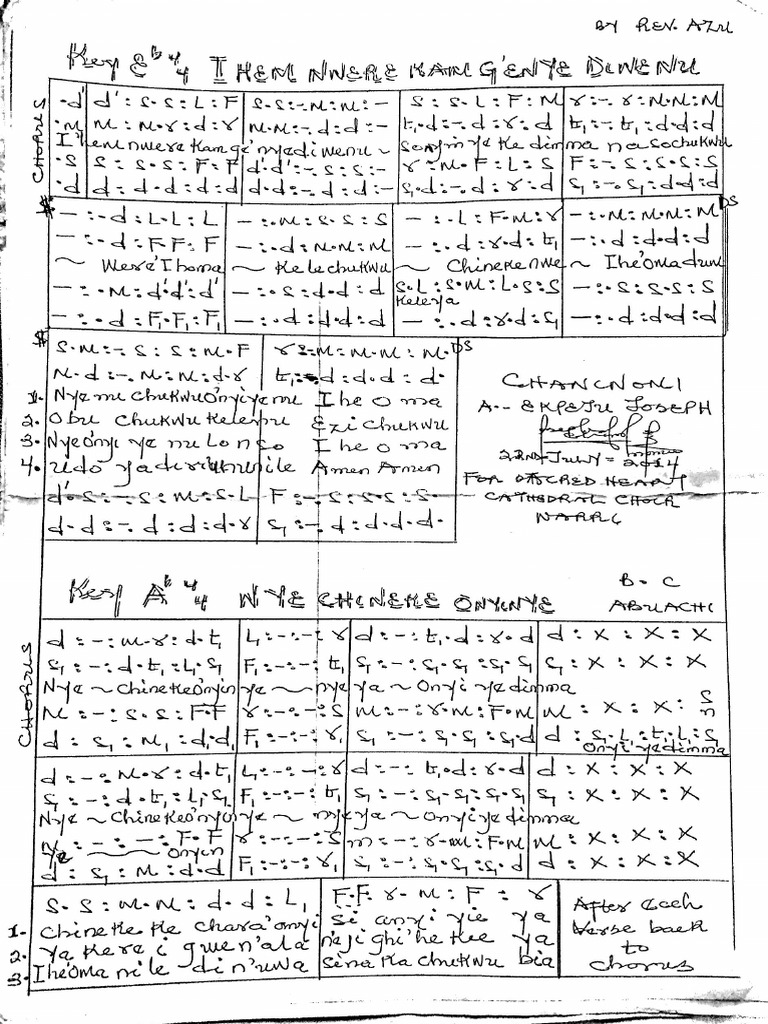 BY REV. AZU
Key E♭ 4/4 IHEM NWERE KAM G'ENYE DIWENU
CHORUS
.d' | d' : s . s : L : F | s . s : - . m : m : - | s : s . L : F : M | r : - . r : M . M : M
.M | M : M . r : d : r | M . M : - . d : d : - | t₁ . d : - . d : r . d | t₁ : - . t₁ : d . d : d
Ihemnwere Kam ge'nyediwenu ~ Sonyin ye Ke dimma na so chukwu
.s | s : s . s : F : F | d' . d' : - . s : s : - | r : M . F : L : s | F : - . s : s . s : s
.d | d : d . d : d : d | d . d : - . d : d : - | s . d : - . d : r : d | s₁ : - . s₁ : d . d : d
- : . d : L . L : L | - : . M : s . s : s | - : . L : F . M : r | - : . M : M . M : M DS
- : . d : F . F : F | - : . d : M . M : M | - : . d : r . d : t₁ | - : . d : d . d : d
~ Were'Ihoma ~ Kelechukwu ~ Chinekenwe ~ Ihe'omadum
- : . M : d' . d' : d' | - : . s : d . d : d | s . L : s . M : L . s : s | - : . s : s . s : s
Keleya
- : . d : F₁ . F₁ : F₁ | - : . d : d . d : d | - : . d : r . d : s₁ | - : . d : d . d : d
s . M : - . s : s : M . F | r : - M : M . M : M . DS
M . d : - . M : M : d . r | t₁ : - d : d . d : d .
1. Nye mu chukwuonyiyemu Ihe o ma
2. Obu chukwu kelenu Ezi chukwu
3. Nyeonyi ye mu lo n so Ihe o ma
4. Udo ya diri unu nile Amen Amen
d' . s : - . s : M : s . L | F : - . s : s . s : s .
d . d : - . d : d : d . r | s₁ : - . d : d . d : d .
A. - EKPEJU JOSEPH
22ND JULY = 2014
FOR SACRED HEART
CATHEDRAL CHOIR
Key A♭ 4/4 NYE CHINEKE ONYINYE
B. C
ABUACHI
CHORUS
d : - : M . r : d . t₁ | L₁ : - : - : r | d : - : t₁ . d : r . d | d : x : x : x
s₁ : - : d . t₁ : L₁ . s₁ | F₁ : - : - : t₁ | s₁ : - : s₁ . s₁ : s₁ . s₁ | s₁ : x : x : x
Nye ~ Chinekeonyin ye ~ nye ya ~ Onyi ye dimma
M : - : s . s : F . F | r : - : - : s | M : - : r . M : F . M | M : x : x : s
d : s₁ : M₁ : d . d | F₁ : - : - : r₁ | s₁ : - : s₁ . s₁ : s₁ . d | d : s₁ . L₁ : t₁ . L₁ : s₁
Onyi'yedimma
d : - : M . r : d . t₁ | L₁ : - : - : r | d : - : t₁ . d : r . d | d : x : x : x
s₁ : - : d . t₁ : L₁ . s₁ | F₁ : - : - : t₁ | s₁ : - : s₁ . s₁ : s₁ . s₁ | s₁ : x : x : x
Nye ~ Chinekeo'nyinye ~ nye ya ~ Onyi ye dimma
- : - : F . F | r : - : - : s | m : - : r . m : F . M | M : x : x : x
ye Onyin
d : s₁ : M : d . d | F₁ : - : - : r₁ | s₁ : - : s₁ . s₁ : s₁ . d | d : x : x : x
s . s : M . M : d . d : L₁ | F . F : r . M : F : r
1. Chineke ke chara'onyi si anyi yie ya
2. ya kere i gwen'ala neji ghi'he kee ya
3. Iheoma ni le di n'uwa sina ka chukwu bia
After Each
Verse back
to
Chorus